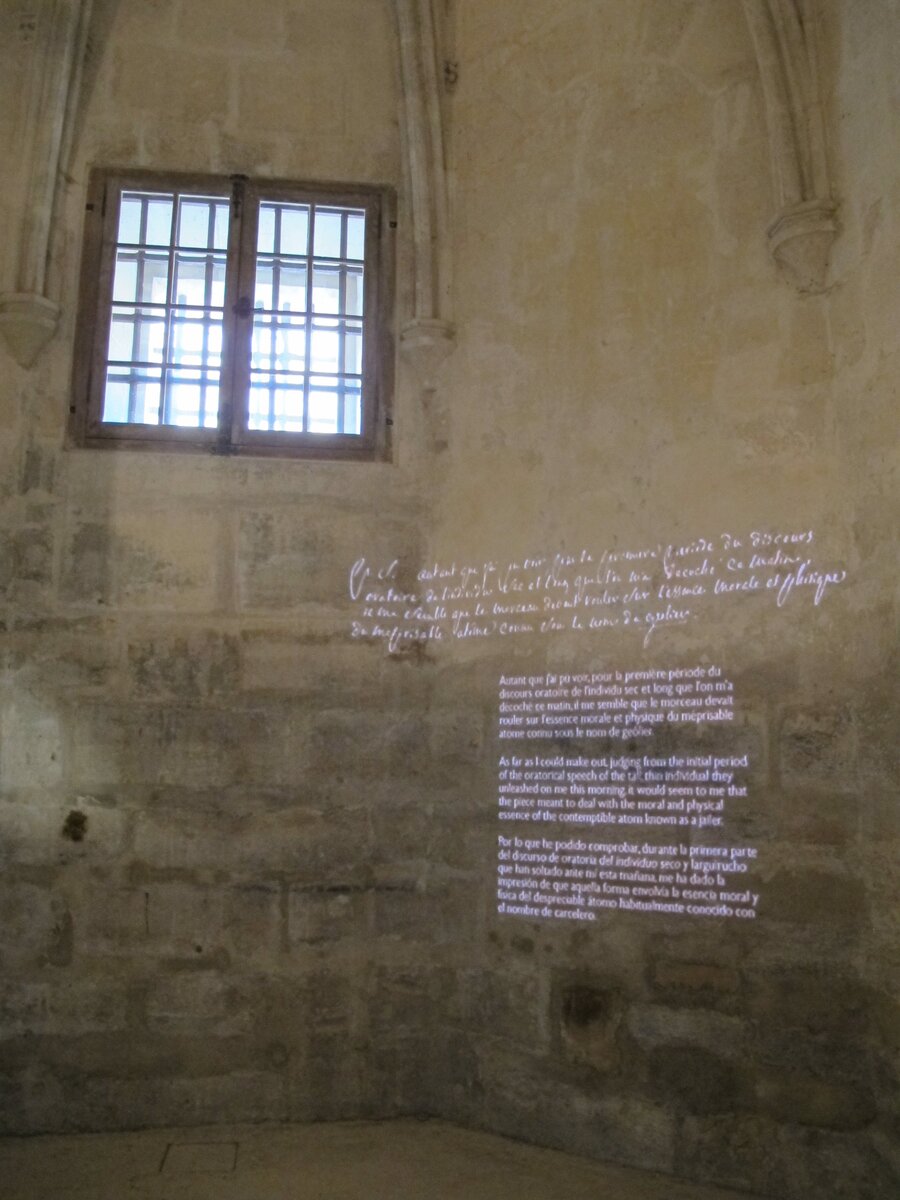 autant que j'ai pu voir pour la première période du discours
oratoire de l'individu sec et long que l'on m'a décoché ce matin,
il me semble que le morceau devait rouler sur l'essence morale et phisique
du méprisable atome connu sous le nom de geolier.
Autant que j'ai pu voir, pour la première période du
discours oratoire de l'individu sec et long que l'on m'a
décoché ce matin, il me semble que le morceau devait
rouler sur l'essence morale et physique du méprisable
atome connu sous le nom de geôlier.
As far as I could make out, judging from the initial period
of the oratorical speech of the tall, thin individual they
unleashed on me this morning, it would seem to me that
the piece meant to deal with the moral and physical
essence of the contemptible atom known as a jailer.
Por lo que he podido comprobar, durante la primera parte
del discurso de oratoria del individuo seco y larguirucho
que han soltado ante mí esta mañana, me ha dado la
impresión de que aquella forma envolvía la esencia moral y
física del despreciable átomo habitualmente conocido con
el nombre de carcelero.